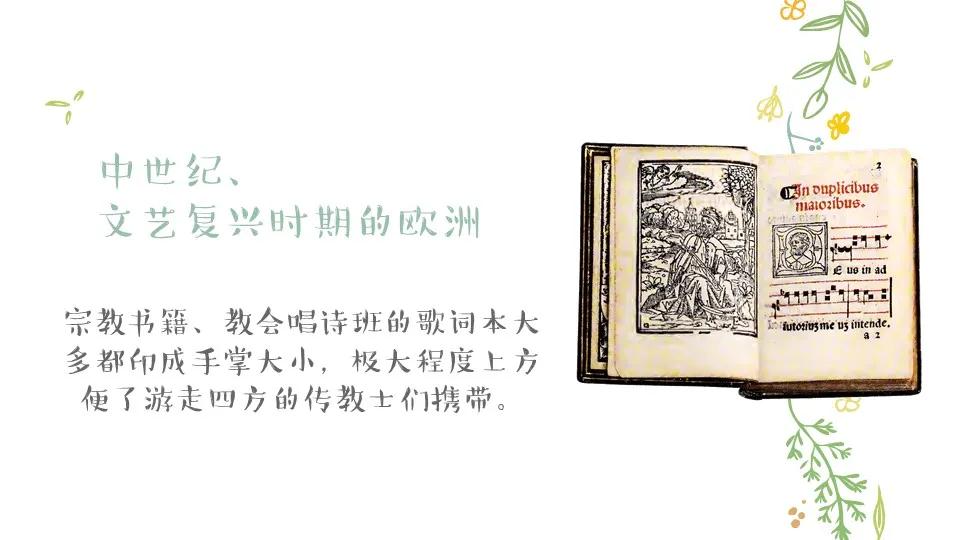 中世纪、
文艺复兴时期的欧洲
宗教书籍、教会唱诗班的歌词本大
多都印成手掌大小，极大程度上方
便了游走四方的传教士们携带。
2
In duplicibus
maioribus.
E us in ad
iutoriuz me uz intende.
a 2